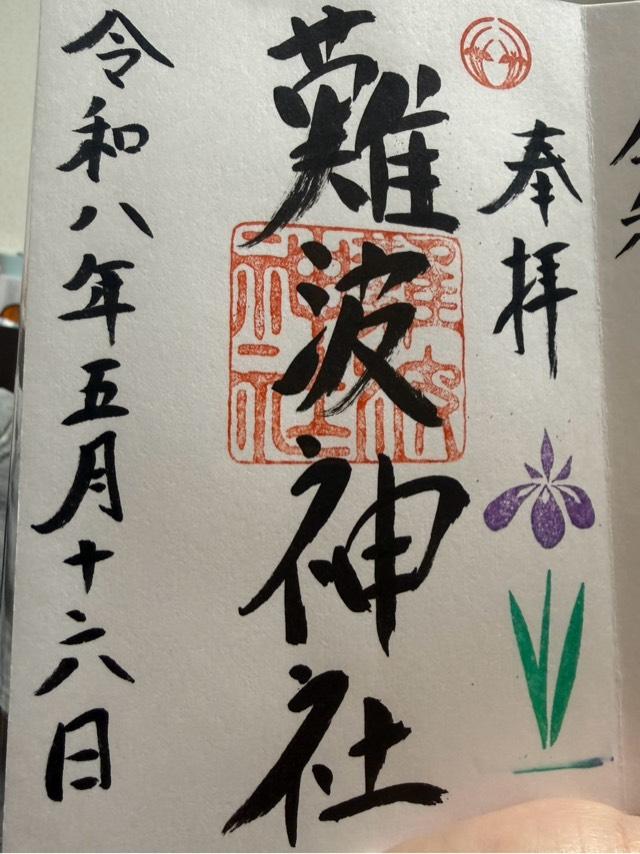 奉拝
難波神社
令和八年五月十六日